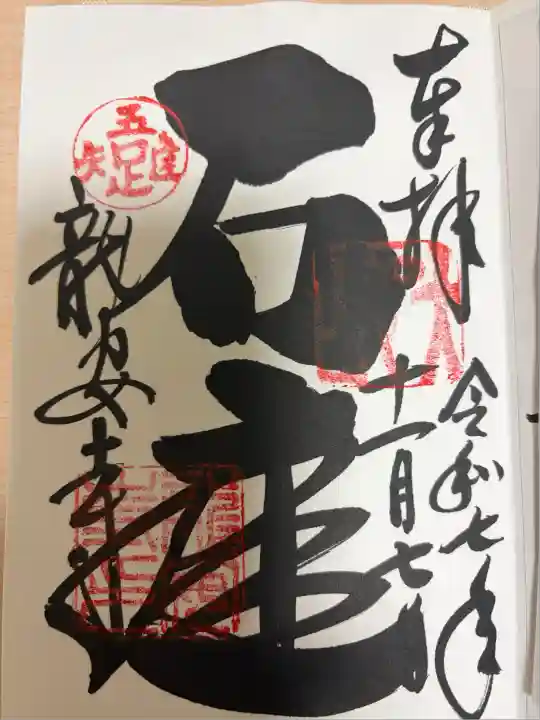 奉拝
令和七年
十一月七日
石庭
龍安寺
五隹疋矢